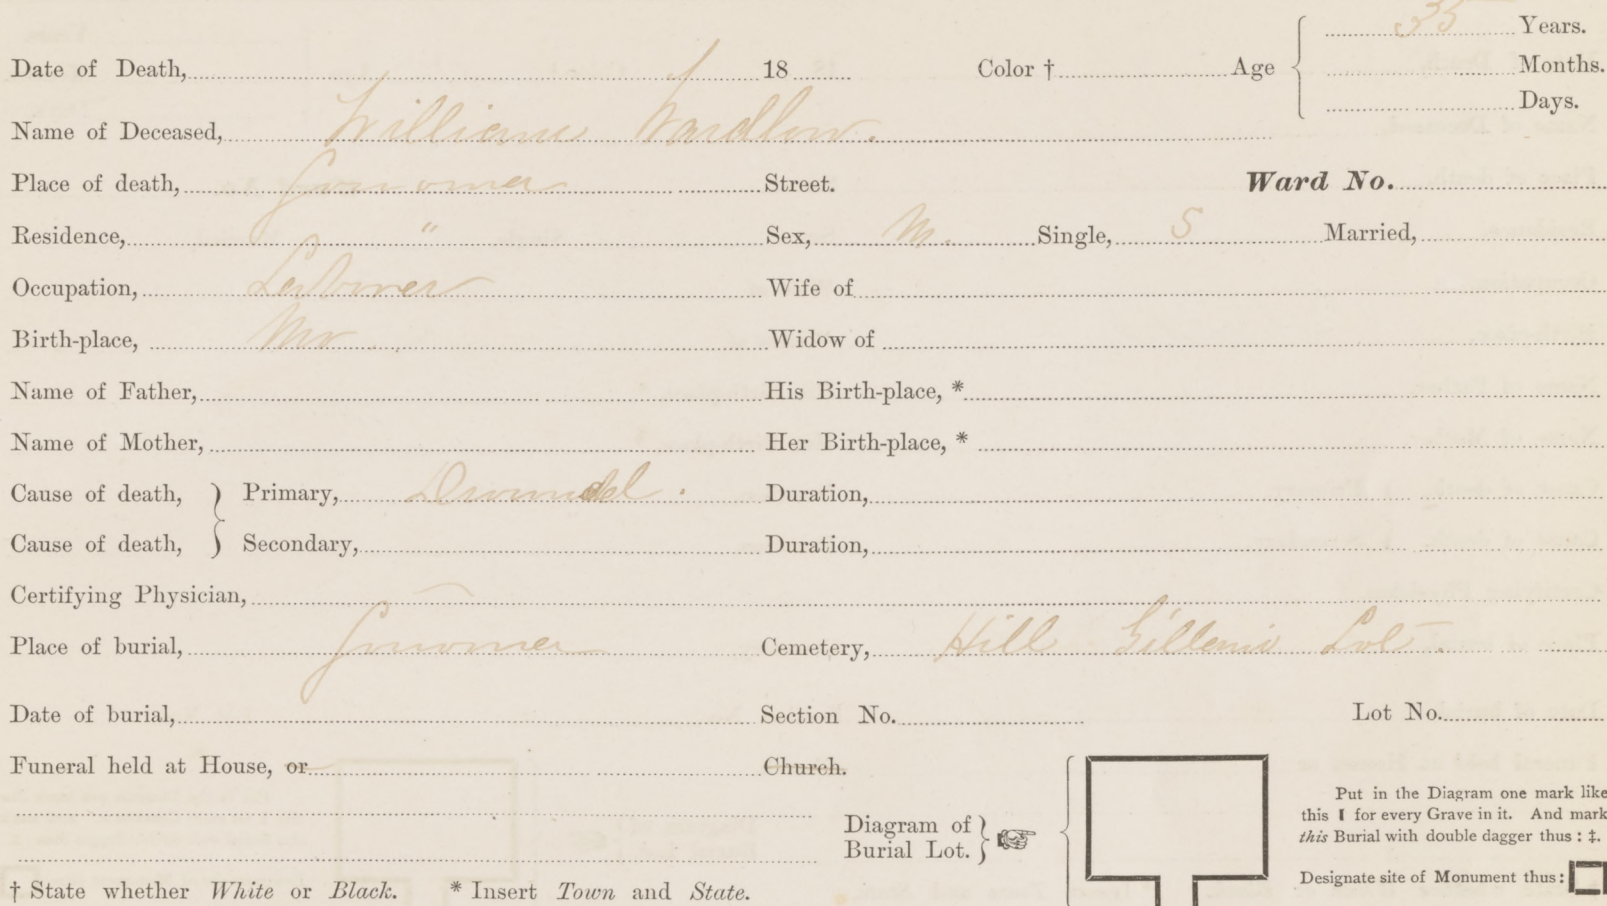 35 Years.
Date of Death, 18 Color † Age Months.
Days.
Name of Deceased, William Wardlow.
Place of death, Street. Ward No.
Residence, " Sex, M. Single, S Married,
Occupation, Laborer Wife of
Birth-place, Mo Widow of
Name of Father, His Birth-place, *
Name of Mother, Her Birth-place, *
Cause of death, Primary, Drowned. Duration,
Cause of death, Secondary, Duration,
Certifying Physician,
Place of burial, Cemetery, Hill Lot
Date of burial, Section No. Lot No.
Funeral held at House, or Church.
Put in the Diagram one mark like
this ❙ for every Grave in it. And mark
this Burial with double dagger thus: ‡.
Diagram of
Burial Lot.
Designate site of Monument thus:
† State whether White or Black. * Insert Town and State.